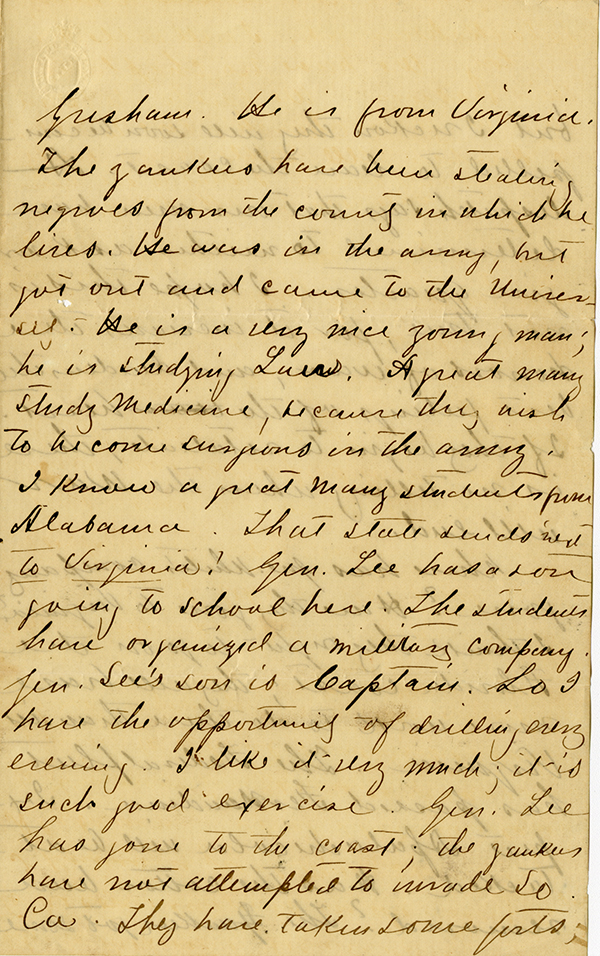 Gresham. He is from Virginia.
The yankees have been stealing
negroes from the county in which he
lives. He was in the army, but
got out and came to the Univer-
sity. He is a very nice young man;
he is studying Law. A great many
study Medicine, because they wish
to become surgeons in the army.
I know a great many students from
Alabama. That state sends next
to Virginia! Gen. Lee has a son
going to school here. The students
have organized a military company.
Gen. Lee's son is Captain. So I
have the opportunity of drilling every
evening. I like it very much; it is
such good exercise. Gen. Lee
has gone to the coast; the yankees
have not attempted to invade So.
Ca. They have taken some forts,